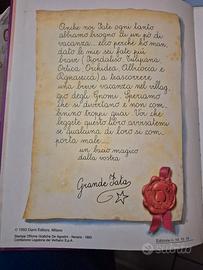 Anche noi Fate ogni tanto
abbiamo bisogno di un pò di
vacanza... ecco perché ho man
dato le mie sei fate più
brave (Fiordaliso, Tulipana,
Ortica, Orchidea, Albicocca e
Pignasecca) a trascorrere
una breve vacanza nel villag
gio degli Gnomi. Speriamo
che si divertano e non com
binino troppi guai. Voi che
leggete questo libro avvisatemi
se qualcuna di loro si com
porta male...
un bacio magico
dalla vostra
Grande Fata
© 1993 Dami Editore, Milano
Stampa: Officine Grafiche De Agostini - Novara - 1993
Confezione: Legatoria del Verbano S.p.A.